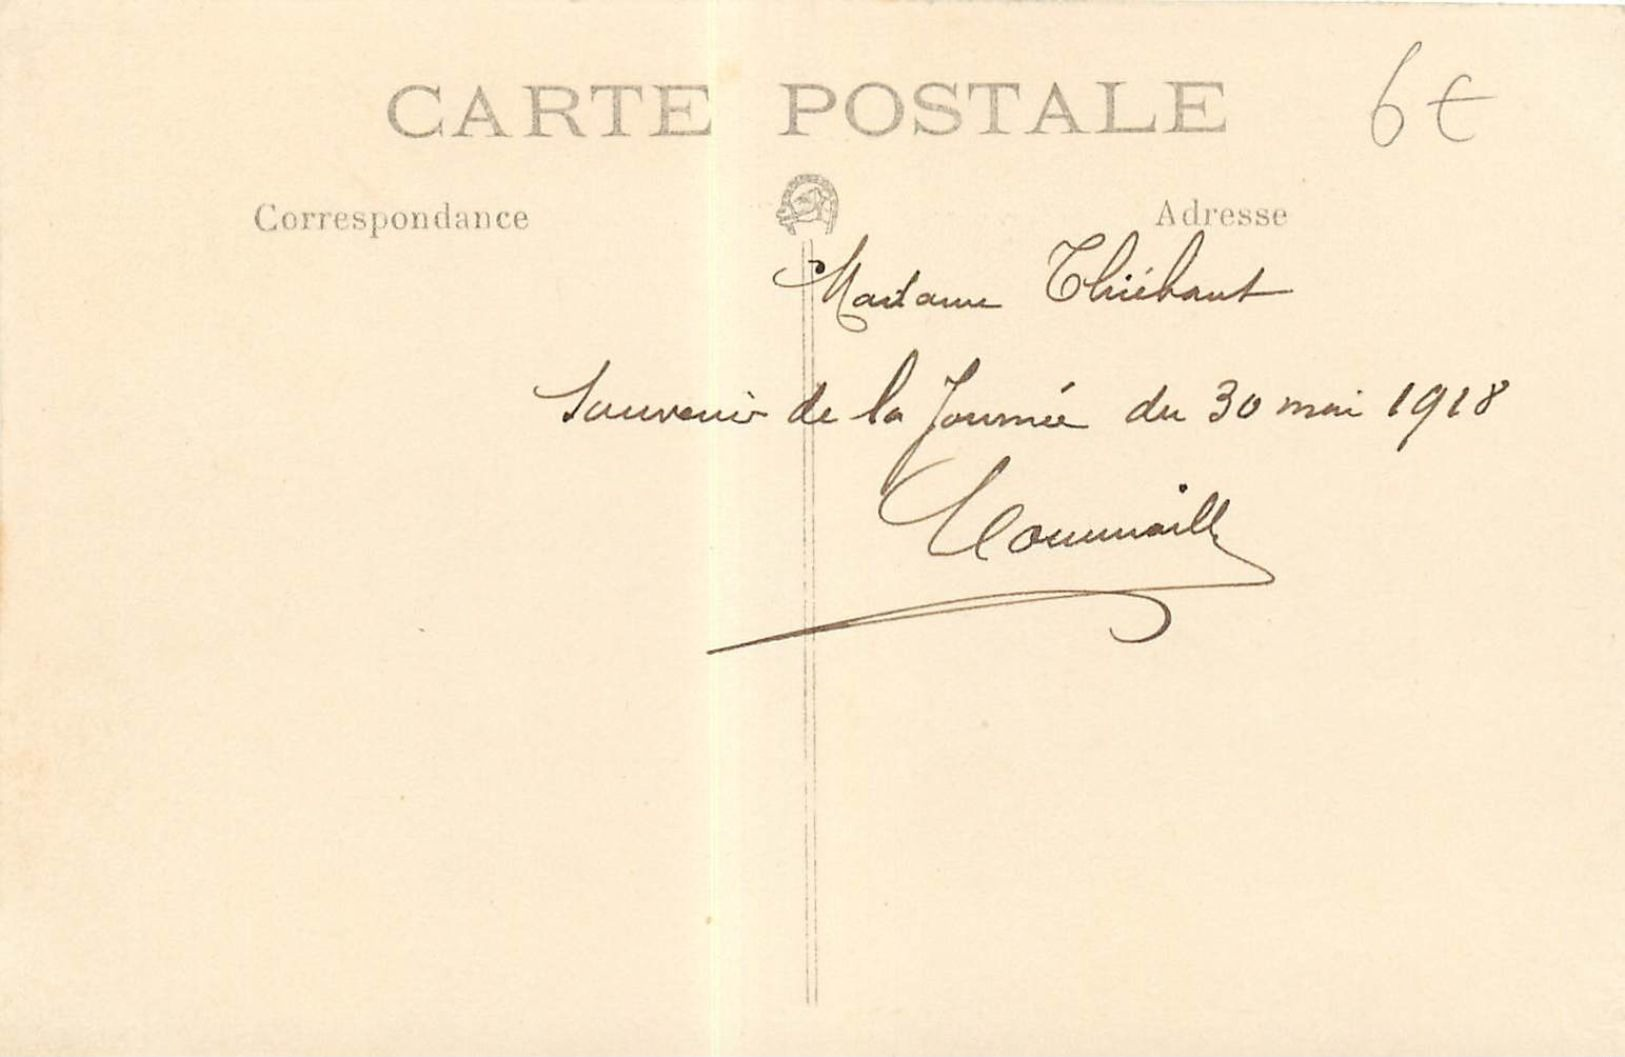 CARTE POSTALE
6€
Correspondance
Adresse
Madame Thiébaut
Souvenir de la Journée du 30 mai 1918